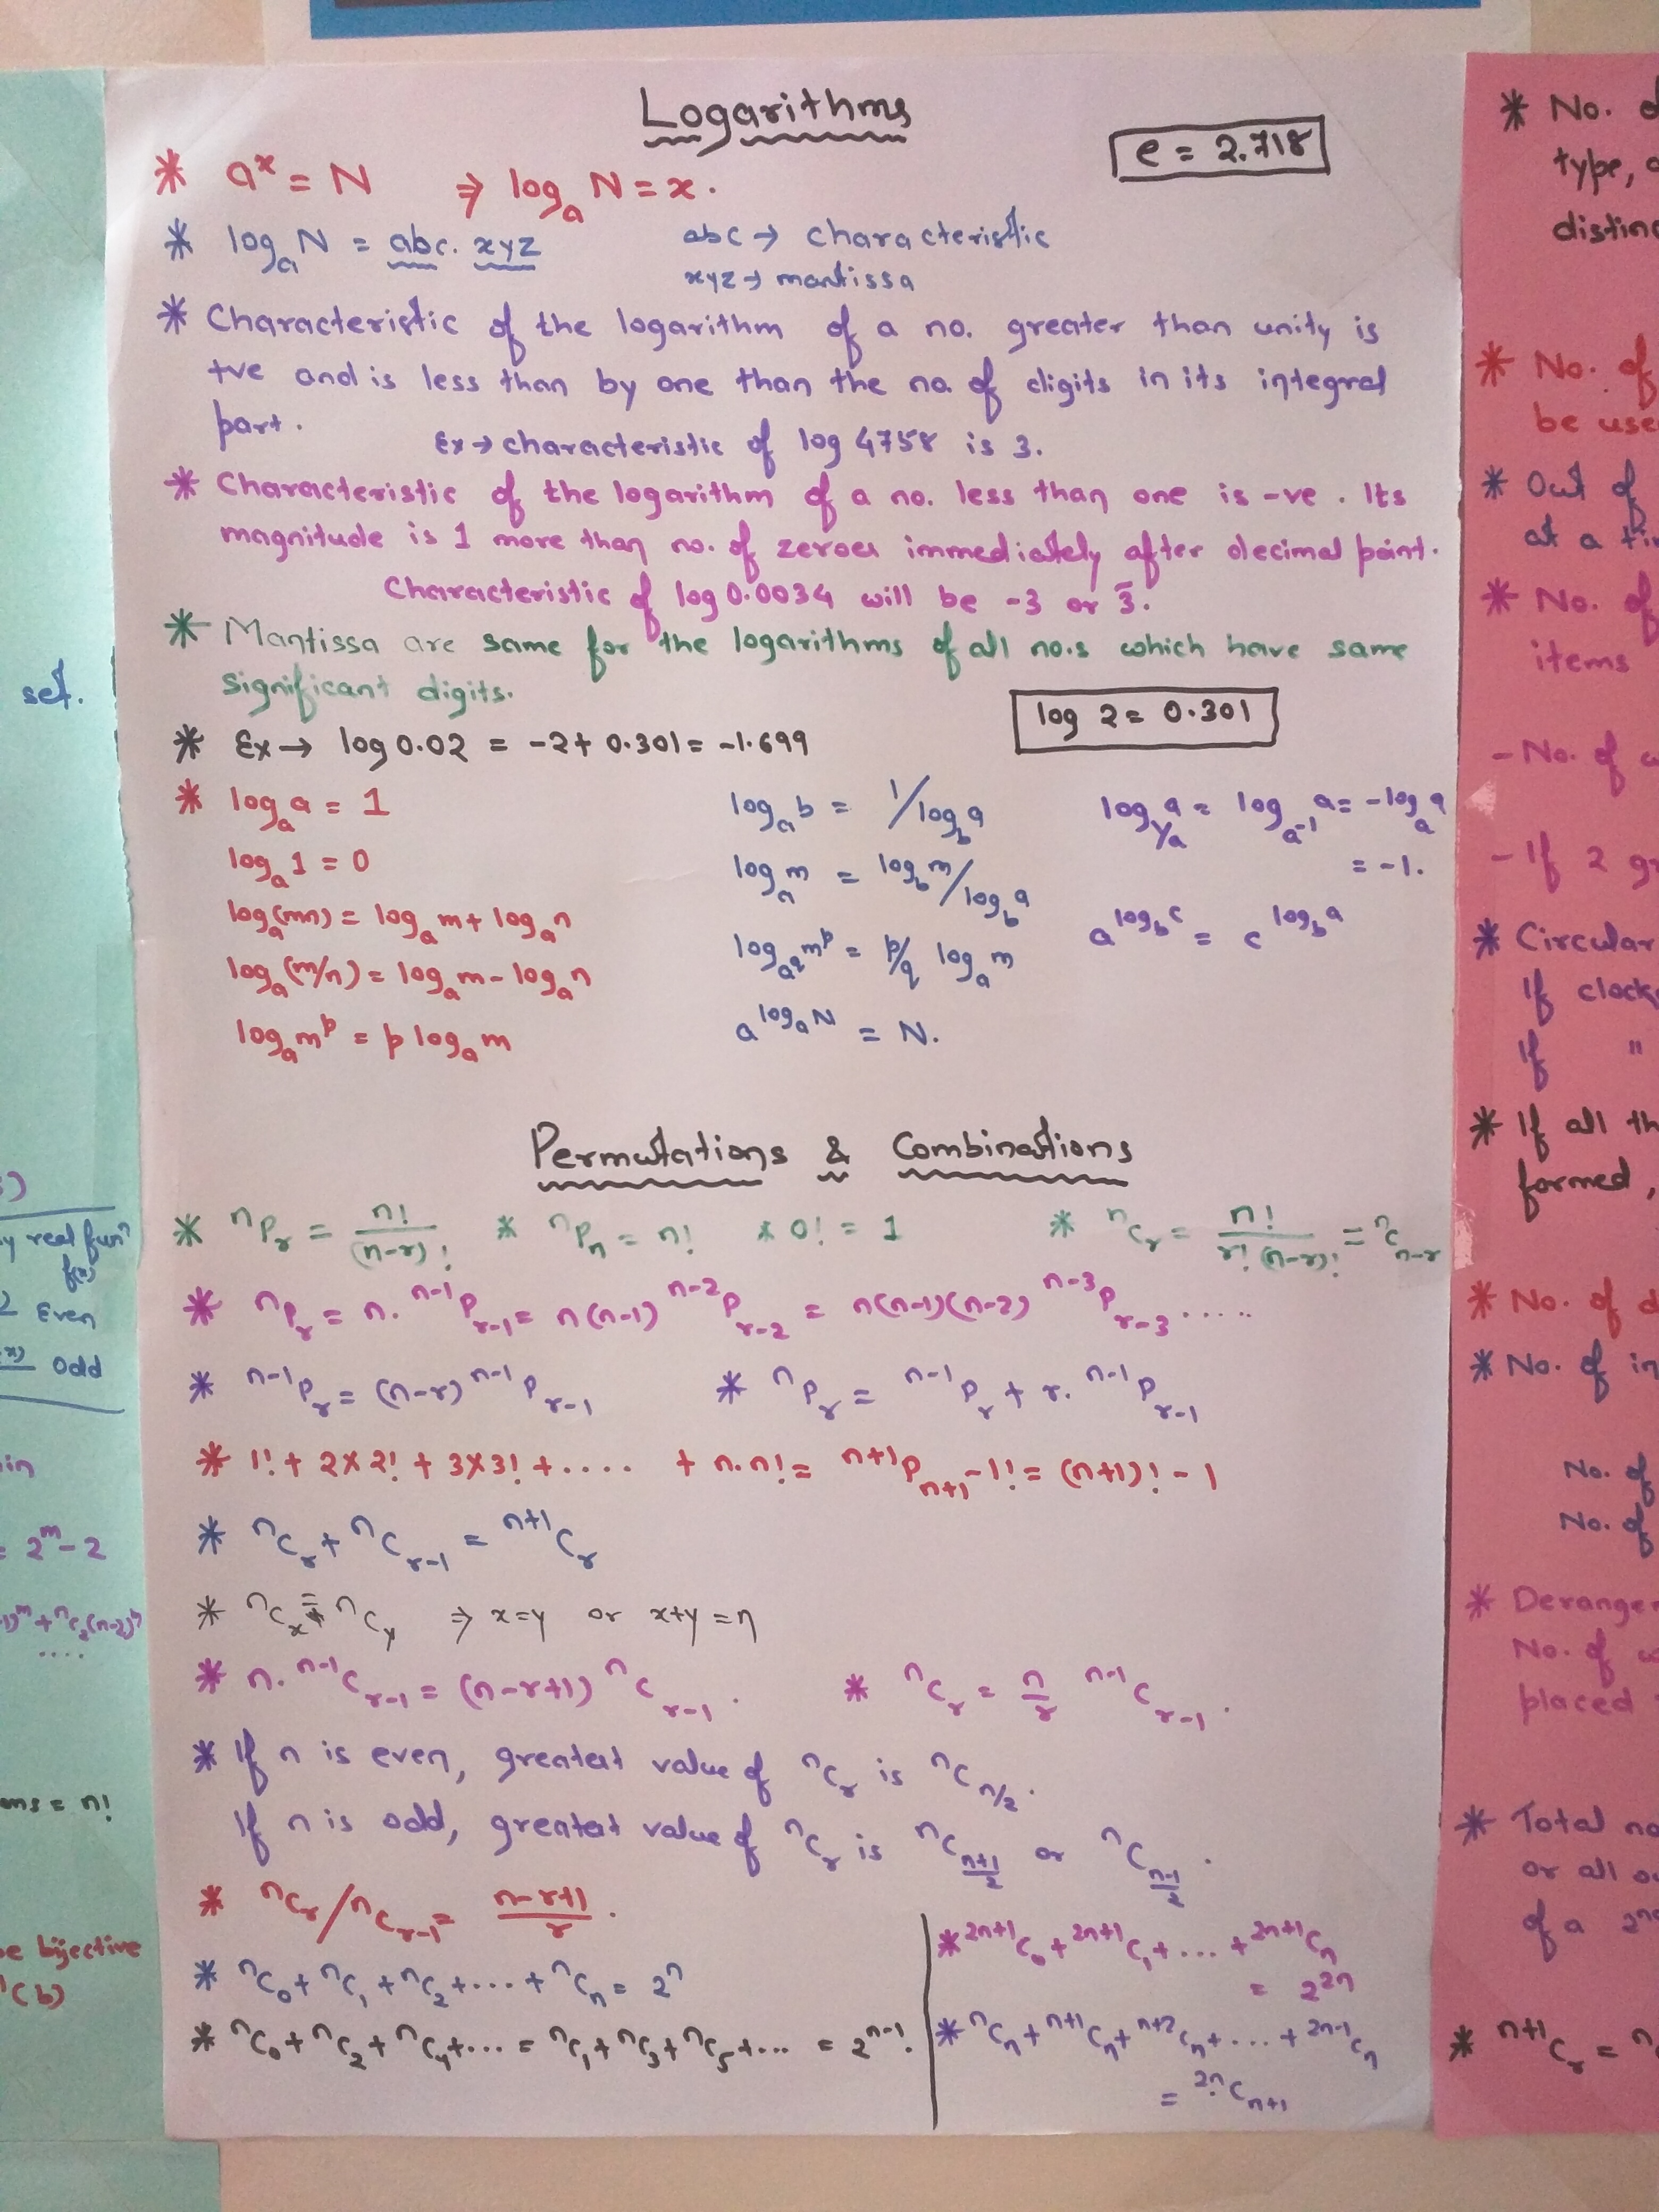 Logarithms
e = 2.718
* aˣ = N ⇒ logₐ N = x.
* logₐ N = abc. xyz abc → characteristic
xyz → mantissa
* Characteristic of the logarithm of a no. greater than unity is
+ve and is less than by one than the no. of digits in its integral
part.
Ex → characteristic of log 4758 is 3.
* Characteristic of the logarithm of a no. less than one is -ve. Its
magnitude is 1 more than no. of zeroes immediately after decimal point.
Characteristic of log 0.0034 will be -3 or 3̄.
* Mantissa are same for the logarithms of all no.s which have same
significant digits.
log 2 = 0.301
* Ex → log 0.02 = -2 + 0.301 = -1.699
* logₐ a = 1 logₐ b = 1/log_b a log_{1/a} a = log_{a^-1} a = -logₐ a
= -1.
logₐ 1 = 0 logₐ m = log_b m / log_b a
logₐ(mn) = logₐ m + logₐ n log_{a^q} m^p = p/q logₐ m a^{log_b c} = c^{log_b a}
logₐ(m/n) = logₐ m - logₐ n a^{logₐ N} = N.
logₐ m^p = p logₐ m
Permutations & Combinations
* ⁿPᵣ = n!/(n-r)! * ⁿPₙ = n! * 0! = 1 * ⁿCᵣ = n!/r!(n-r)! = ⁿC_{n-r}
* ⁿPᵣ = n. ^{n-1}P_{r-1} = n(n-1) ^{n-2}P_{r-2} = n(n-1)(n-2) ^{n-3}P_{r-3} .....
* ^{n-1}Pᵣ = (n-r) ^{n-1}P_{r-1} * ⁿPᵣ = ^{n-1}Pᵣ + r. ^{n-1}P_{r-1}
* 1! + 2×2! + 3×3! + .... + n.n! = ^{n+1}P_{n+1} - 1! = (n+1)! - 1
* ⁿCᵣ + ⁿC_{r-1} = ^{n+1}Cᵣ
* ⁿCₓ = ⁿC_y ⇒ x=y or x+y = n
* n. ^{n-1}C_{r-1} = (n-r+1) ⁿC_{r-1}. * ⁿCᵣ = n/r ^{n-1}C_{r-1}.
* If n is even, greatest value of ⁿCᵣ is ⁿC_{n/2}.
If n is odd, greatest value of ⁿCᵣ is ⁿC_{(n+1)/2} or ⁿC_{(n-1)/2}.
* ⁿCᵣ/ⁿC_{r-1} = (n-r+1)/r.
* ⁿC₀ + ⁿC₁ + ⁿC₂ + .... + ⁿCₙ = 2ⁿ
* ⁿC₀ + ⁿC₂ + ⁿC₄ + ... = ⁿC₁ + ⁿC₃ + ⁿC₅ + ... = 2^{n-1}.
* ^{2n+1}C₀ + ^{2n+1}C₁ + .... + ^{2n+1}Cₙ
= 2^{2n}
* ⁿCₙ + ^{n+1}Cₙ + ^{n+2}Cₙ + .... + ^{2n-1}Cₙ
= ^{2n}C_{n+1}
set.
Even
odd
= 2^m - 2
....
= n!
bijective
(b)
* No.
type,
* No. of
be
* Out of
at a
* No. of
items
- No. of
- If 2
* Circular
If
If "
* If all
formed,
* No. of
* No. of
No. of
No. of
*
No. of
placed
* Total
or all
of a
* ^{n+1}Cᵣ =